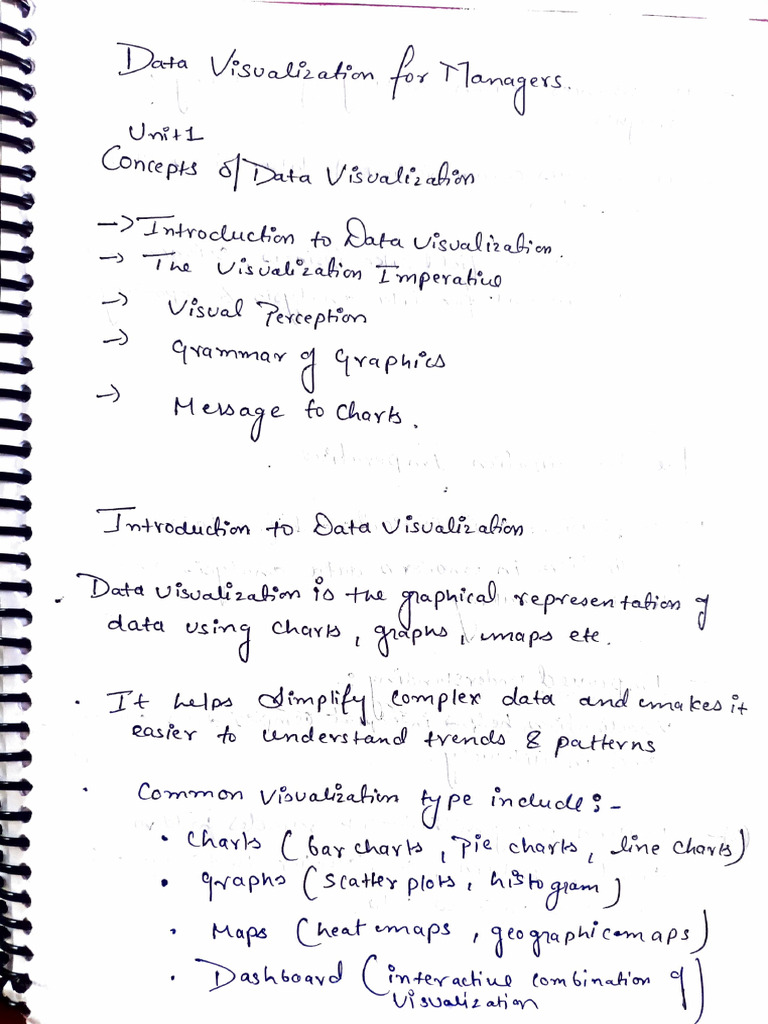 Data Visualization for Managers.
Unit 1
Concepts of Data Visualization
-> Introduction to Data Visualization.
-> The Visualization Imperative
-> Visual Perception
-> Grammar of Graphics
-> Message to Charts.
Introduction to Data Visualization
. Data visualization is the graphical representation of
data using charts, graphs, maps etc.
. It helps simplify complex data and makes it
easier to understand trends & patterns
. Common visualization type include :-
• Charts (bar charts, pie charts, line charts)
• graphs (scatter plots, histogram)
• Maps (heat maps, geographic maps)
• Dashboard (interactive combination of
visualization)